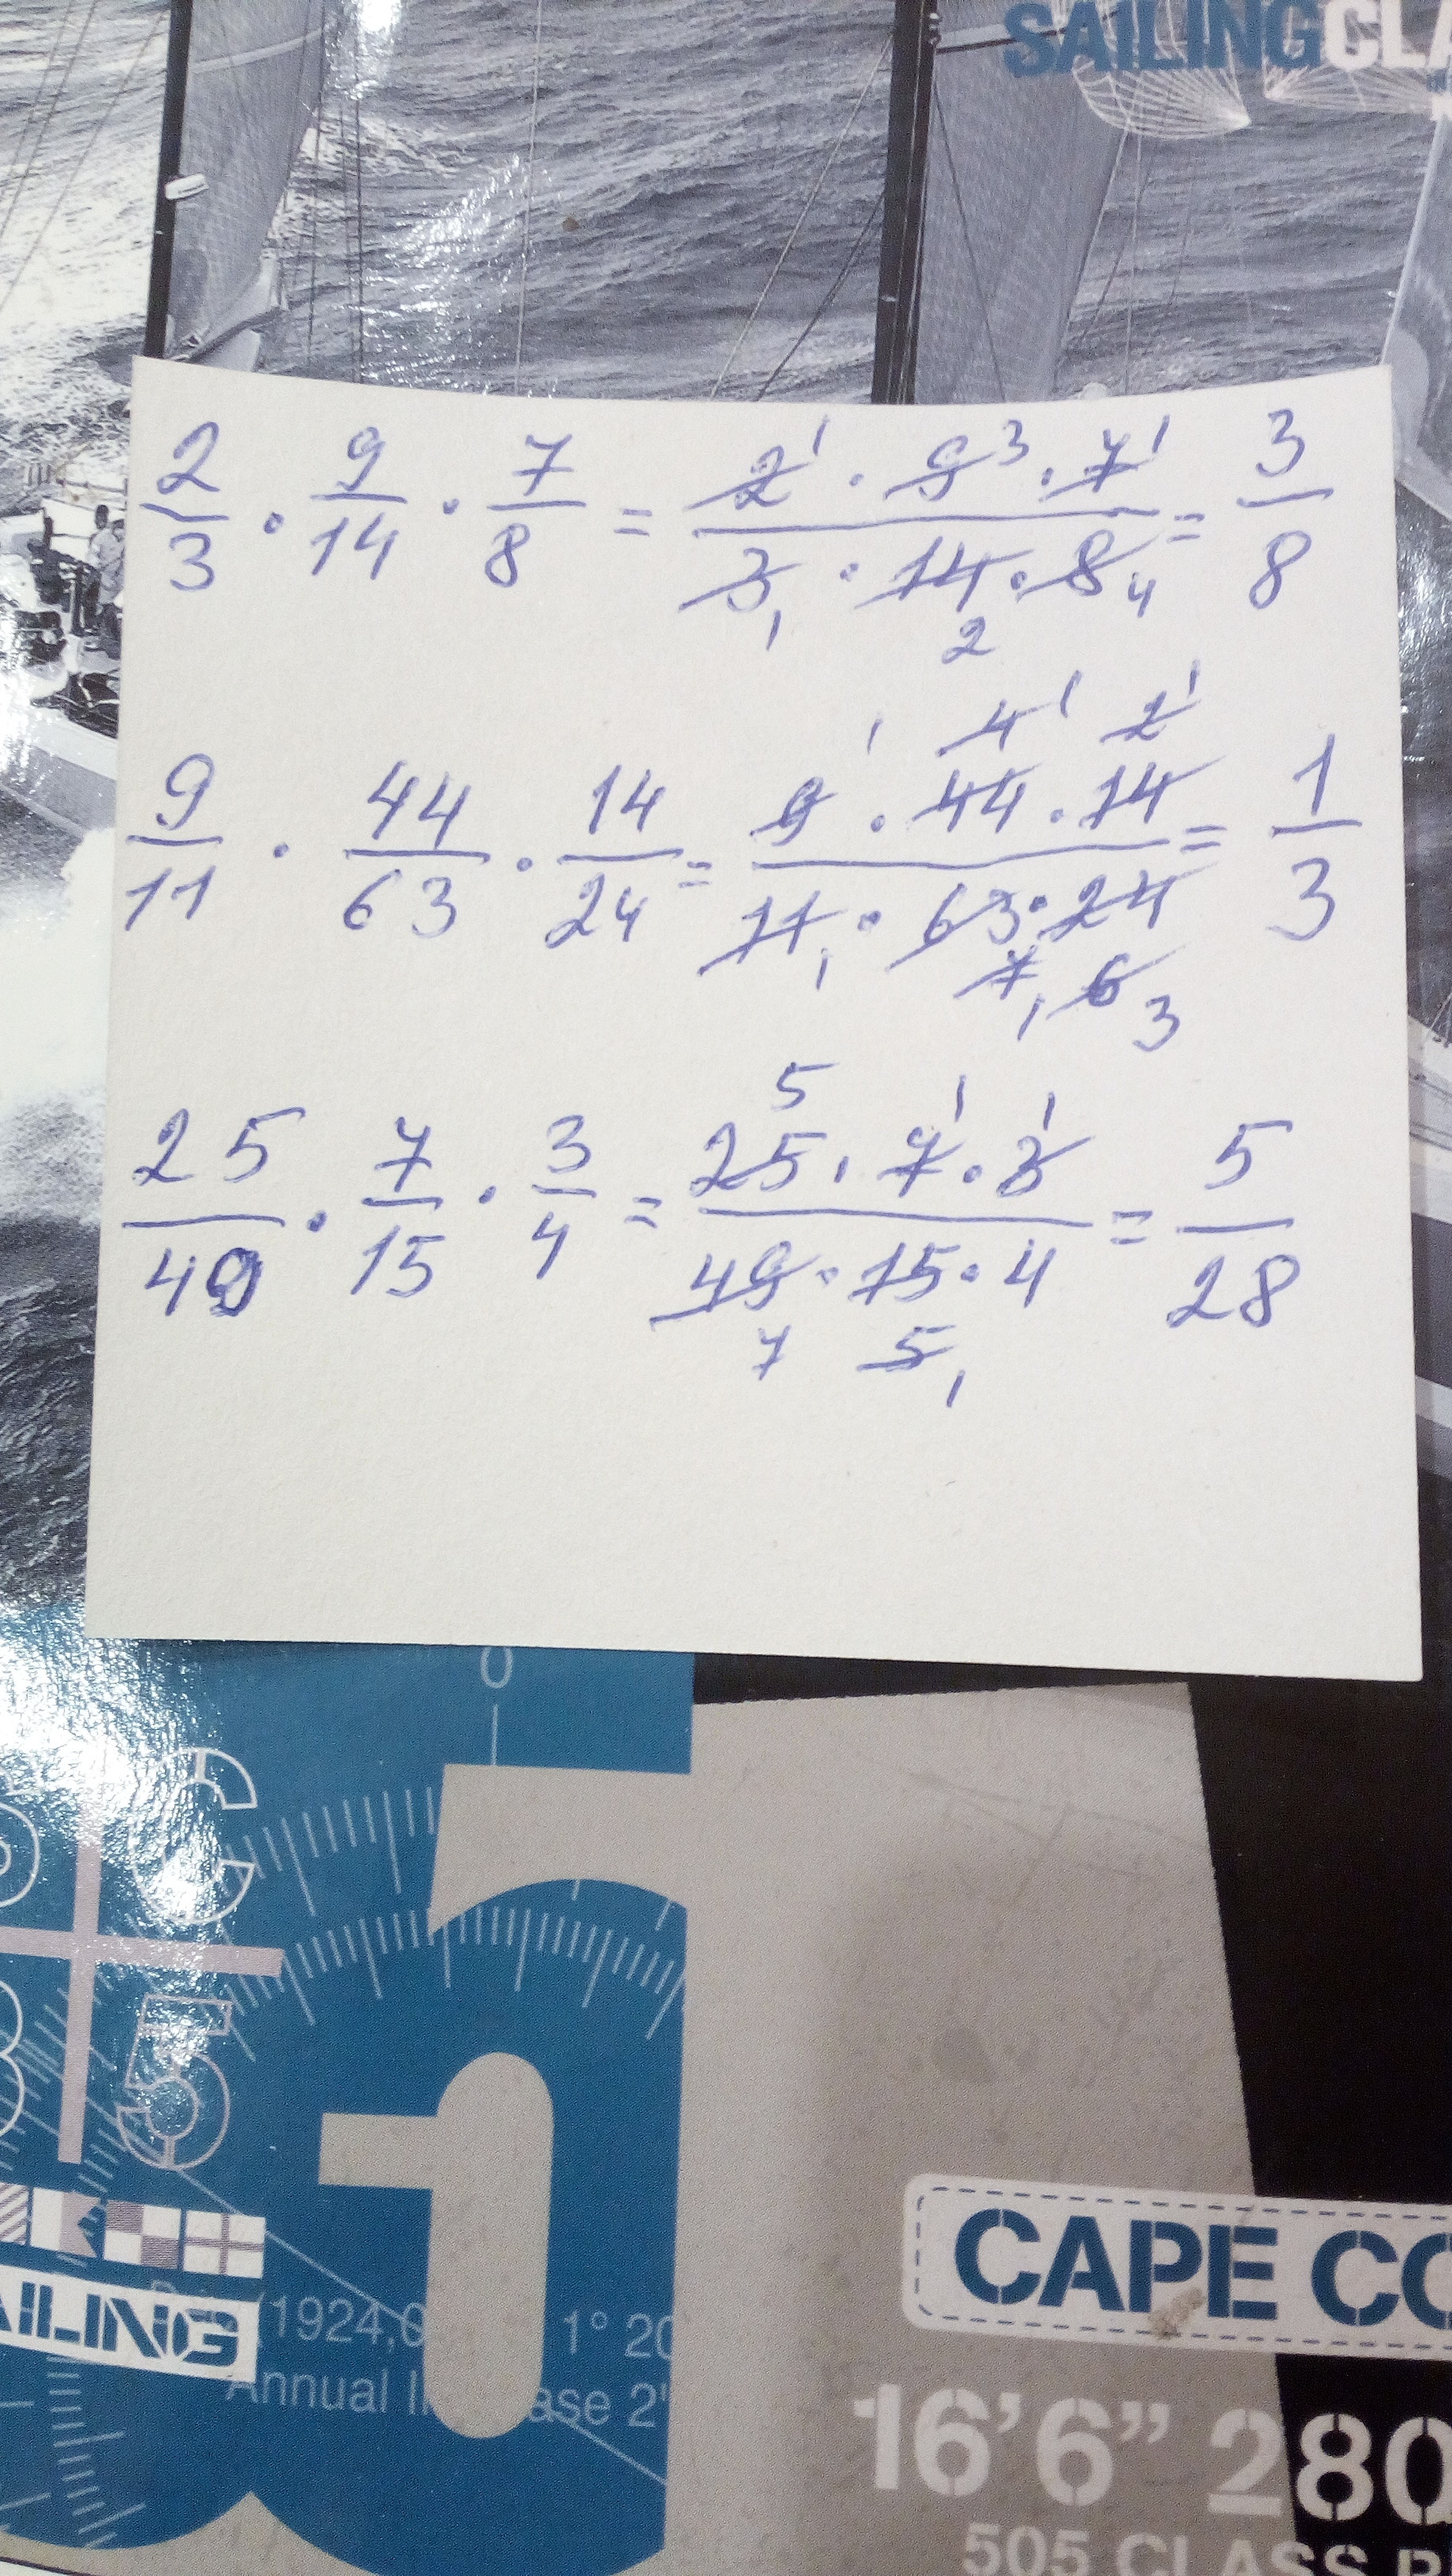 SAILINGCLA
2/3 · 9/14 · 7/8 = 2 ¹ · 9 ³ · 7 ¹ / 3 ₁ · 14 ₂ · 8 ₄ = 3/8
9/11 · 44/63 · 14/24 = 9 ¹ · 44 4 ¹ · 14 2 ¹ / 11 ₁ · 63 7 ₁ · 24 6 ₃ = 1/3
25/49 · 7/15 · 3/4 = 25 ⁵ · 7 ¹ · 3 ¹ / 49 ₇ · 15 5 ₁ · 4 = 5/28
0
C
5
AILING
1924,0
1° 20
Annual I
ase 2'
CAPE CO
16'6” 280
505 CLASS